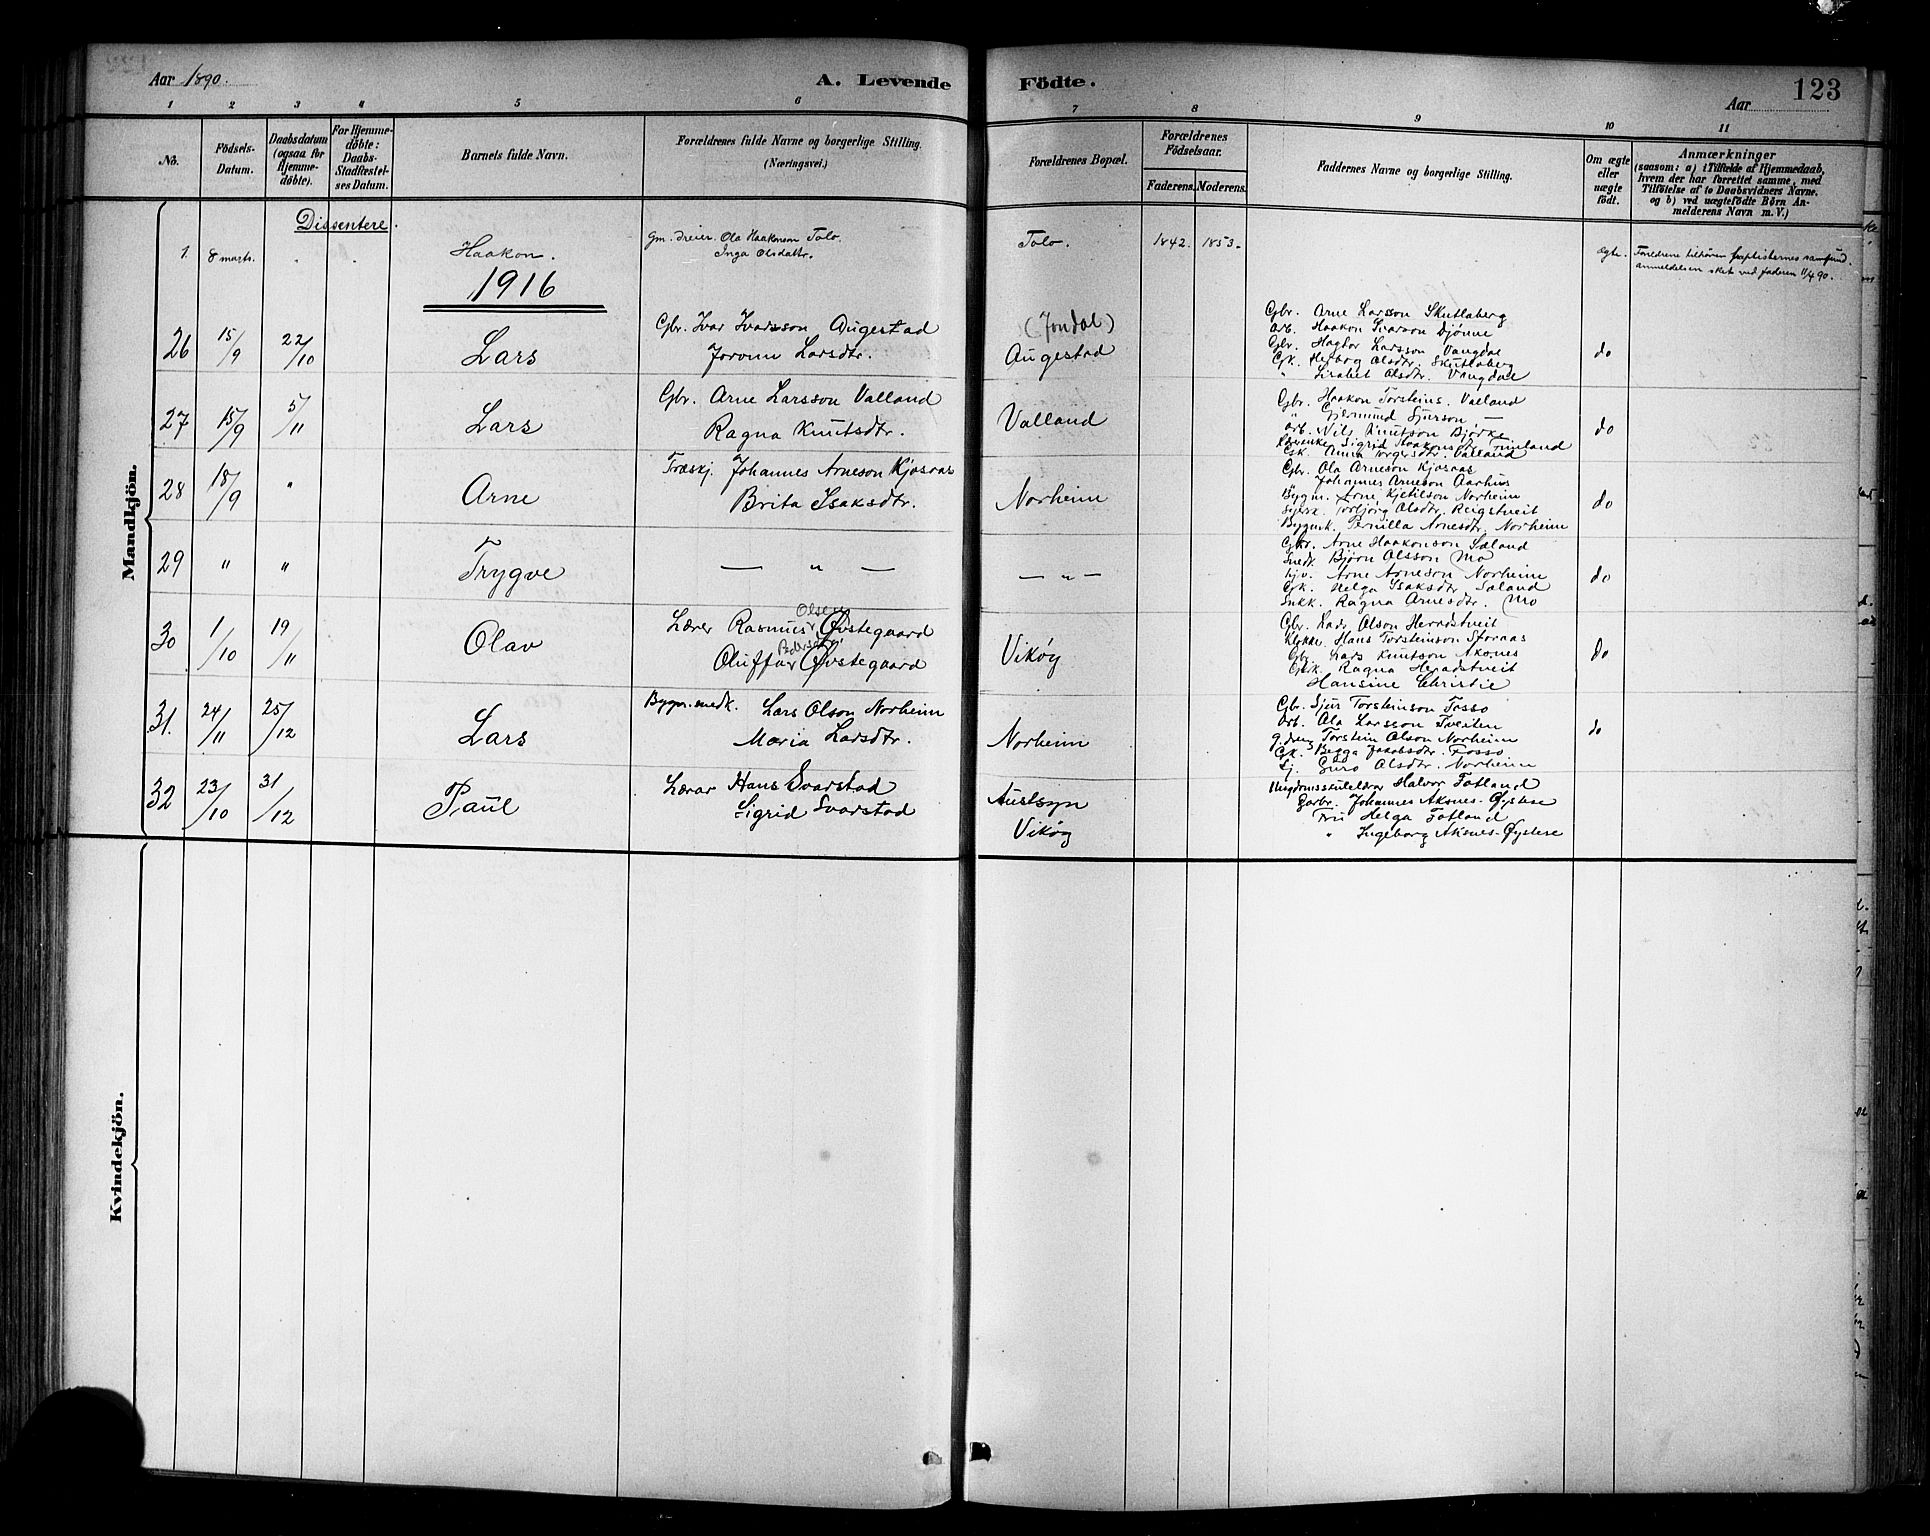 Aar 1890.
A. Levende Födte.
Aar
123
1 2 3 4 5 6 7 8 9 10 11
No.
Födsels-Datum.
Daabsdatum (ogsaa for Hjemme-döbte).
For Hjemme-döbte: Daabs-Stadfæstel-ses Datum.
Barnets fulde Navn.
Forældrenes fulde Navne og borgerlige Stilling.
(Næringsvei.)
Forældrenes Bopæl.
Forældrenes Födselsaar.
Faderens. Moderens.
Faddernes Navne og borgerlige Stilling.
Om ægte eller uægte födt.
Anmærkninger
(saasom: a) i Tilfælde af Hjemmedaab, hvem der har forrettet samme, med Tilföielse af to Daabsvidners Navne. og b) ved uægtefödte Börn An-melderens Navn m. V.)
Mandkjön.
Dissentere.
1. 8 marts. " " Haakon.
Gm. dreier. Ola Haakonson Tolo.
Inga Olsdattr.
Tolo. 1842. 1853.
ægte. Forældrene tilhører baptisternes samfund.
anmeldelsen sket ved faderen 11/4 90.
1916
26 15/9 22/10 Lars
Gbr. Ivar Ivarsson Augestad
Jorunn Larsdtr.
(Jondal)
Augestad
Gbr. Arne Larsson Skutlaberg
Arb. Haakon Ivarson Djönne
Gbr. Hagtor Larsson Vangdal
Gk. Herborg Olsdtr. Skutlaberg
" Lisabet Olsdtr. Vangdal
do
27 15/9 5/11 Lars
Gbr. Arne Larsson Valland
Ragna Knutsdtr.
Valland
Gbr. Haakon Torsteins. Valland
" Gjermund Sjurson —
Arb. Nils Knutson Bjørke
Sigrid Isaksdtr. Tveitland
Gk. Anna Torgersdtr. Valland
do
28 18/9 " Arne
Træskj. Johannes Arneson Kjosaas
Brita Isaksdtr.
Norheim
Gbr. Ola Arneson Kjosaas
Johannes Arneson Aarhus
Bygm. Arne Kjetilson Norheim
Torbjörg Olsdtr. Reigstveit
Bygmk. Pernilla Arnesdtr. Norheim
do
29 " " Trygve
— " —
— " —
Gbr. Arne Haakonson Sæland
Snedk. Bjørn Olsson Mo
Arne Arneson Norheim
Gk. Helga Isaksdtr Sæland
Snkk. Ragna Arnesdtr. Mo
do
30 1/10 19/11 Olav
Olsen
Lærer Rasmus Øvstegaard
Oluffa Øvstegaard
Vikøy
Gbr. Lads Olson Heradstveit
Klokker Hans Torsteinson Storaas
Gbr. Lars Knutson Aksnes
Gbk. Ragna Heradstveit
Hansine Christie
do
31. 24/11 25/12 Lars
Bygn.snedk. Lars Olson Norheim
Maria Larsdtr.
Norheim
Gbr. Sjur Torsteinson Fosso
Arb. Ola Larsson Tveiten
g.dreng Torstein Olson Norheim
Gk. Begga Jakobsdtr. Fosso
Guro Olsdtr. Norheim
do
32 23/10 31/12 Paul
Lærar Hans Svarstad
Sigrid Svarstad
Austsyn
Vikøy
Ungdomsskuleldrar Halvor Fotland
Garbr. Johannes Aksnes-Øystese
Fru Helga Fotland
" Ingeborg Aksnes-Øystese
Kvindekjön.